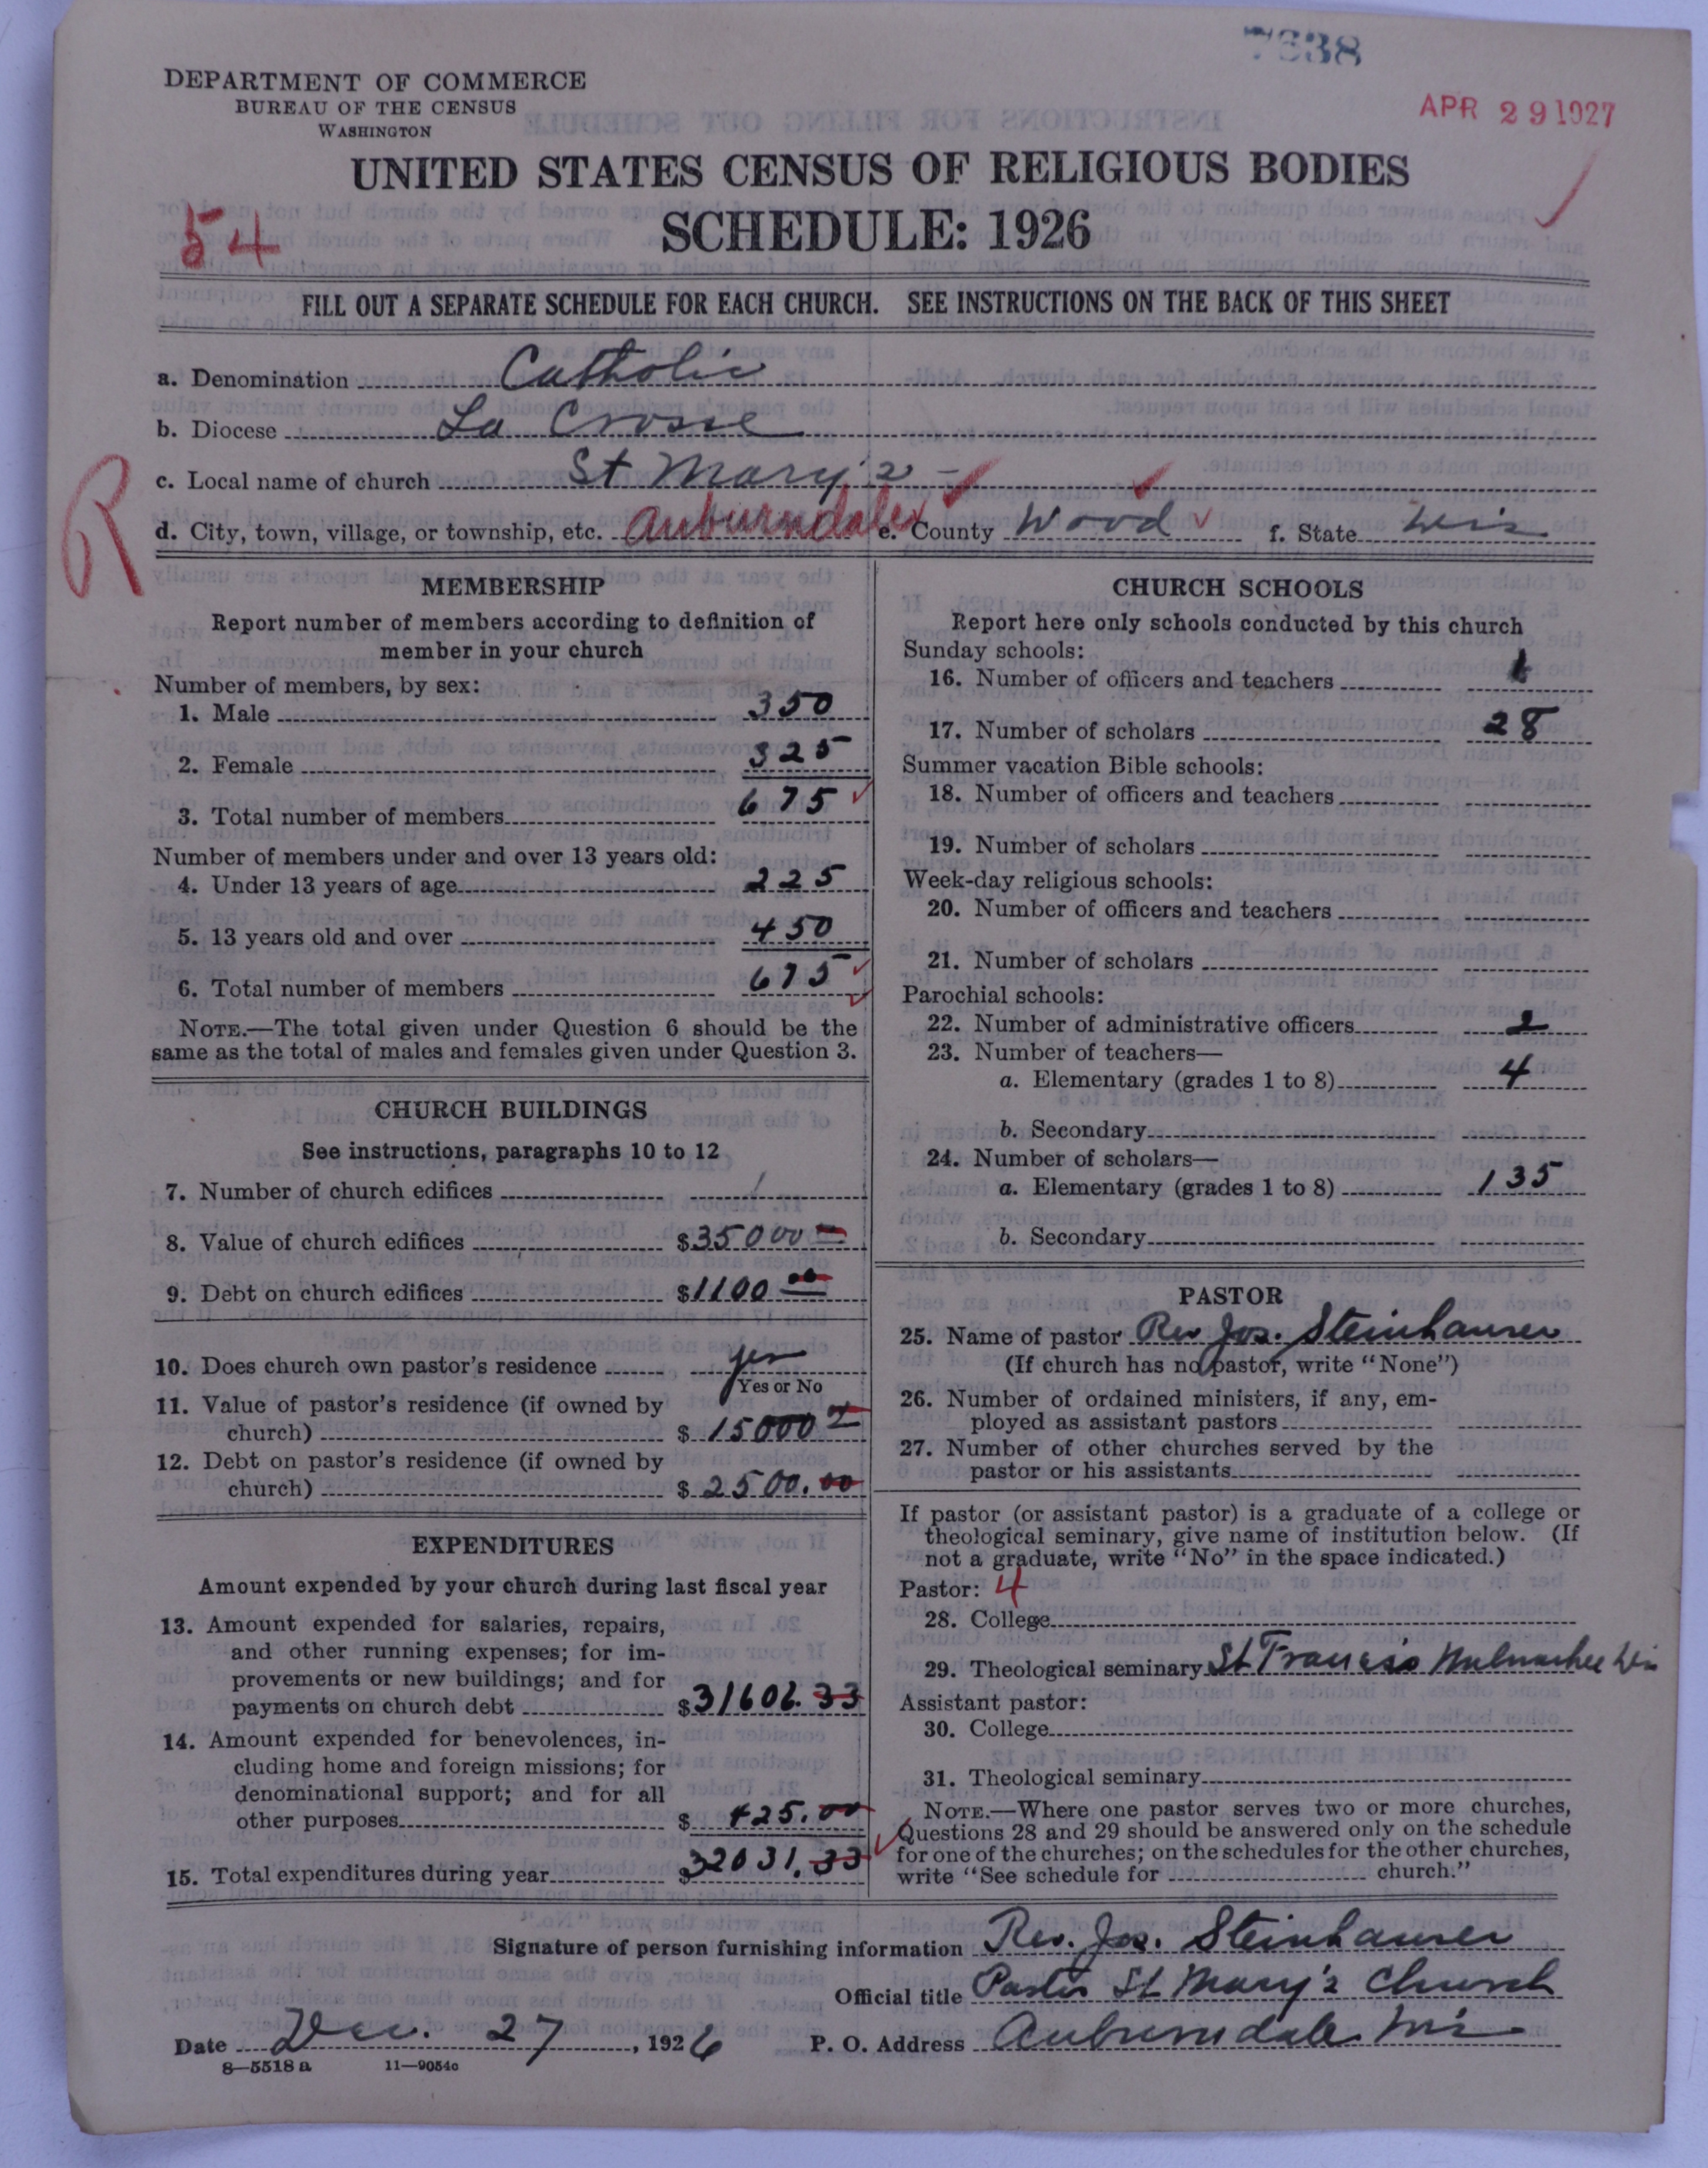 7638
APR 29 1927
DEPARTMENT OF COMMERCE
BUREAU OF THE CENSUS
WASHINGTON
UNITED STATES CENSUS OF RELIGIOUS BODIES
54
SCHEDULE: 1926
FILL OUT A SEPARATE SCHEDULE FOR EACH CHURCH. SEE INSTRUCTIONS ON THE BACK OF THIS SHEET
a. Denomination Catholic
b. Diocese La Crosse
c. Local name of church St Mary's -
R
d. City, town, village, or township, etc. Auburndale e. County Wood f. State Wis
MEMBERSHIP
Report number of members according to definition of
member in your church
Number of members, by sex:
1. Male 350
2. Female 325
3. Total number of members 675
Number of members under and over 13 years old:
4. Under 13 years of age 225
5. 13 years old and over 450
6. Total number of members 675
NOTE.—The total given under Question 6 should be the
same as the total of males and females given under Question 3.
CHURCH BUILDINGS
See instructions, paragraphs 10 to 12
7. Number of church edifices 1
8. Value of church edifices $35000
9. Debt on church edifices $1100 00
10. Does church own pastor's residence yes
Yes or No
11. Value of pastor's residence (if owned by
church) $ 15000
12. Debt on pastor's residence (if owned by
church) $ 2500.00
EXPENDITURES
Amount expended by your church during last fiscal year
13. Amount expended for salaries, repairs,
and other running expenses; for im-
provements or new buildings; and for
payments on church debt $31606.33
14. Amount expended for benevolences, in-
cluding home and foreign missions; for
denominational support; and for all
other purposes $ 425.00
15. Total expenditures during year $32031.33
CHURCH SCHOOLS
Report here only schools conducted by this church
Sunday schools:
16. Number of officers and teachers 1
17. Number of scholars 28
Summer vacation Bible schools:
18. Number of officers and teachers
19. Number of scholars
Week-day religious schools:
20. Number of officers and teachers
21. Number of scholars
Parochial schools:
22. Number of administrative officers 2
23. Number of teachers—
a. Elementary (grades 1 to 8) 4
b. Secondary
24. Number of scholars—
a. Elementary (grades 1 to 8) 135
b. Secondary
PASTOR
25. Name of pastor Rev Jos. Steinhauser
(If church has no pastor, write "None")
26. Number of ordained ministers, if any, em-
ployed as assistant pastors
27. Number of other churches served by the
pastor or his assistants
If pastor (or assistant pastor) is a graduate of a college or
theological seminary, give name of institution below. (If
not a graduate, write "No" in the space indicated.)
Pastor: 4
28. College
29. Theological seminary St Francis Milwaukee Wis
Assistant pastor:
30. College
31. Theological seminary
NOTE.—Where one pastor serves two or more churches,
Questions 28 and 29 should be answered only on the schedule
for one of the churches; on the schedules for the other churches,
write "See schedule for church."
Signature of person furnishing information Rev. Jos. Steinhauser
Official title Pastor St Mary's Church
Date Dec. 27, 1926 P. O. Address Auburndale Wis
8—5518 a 11—9054c